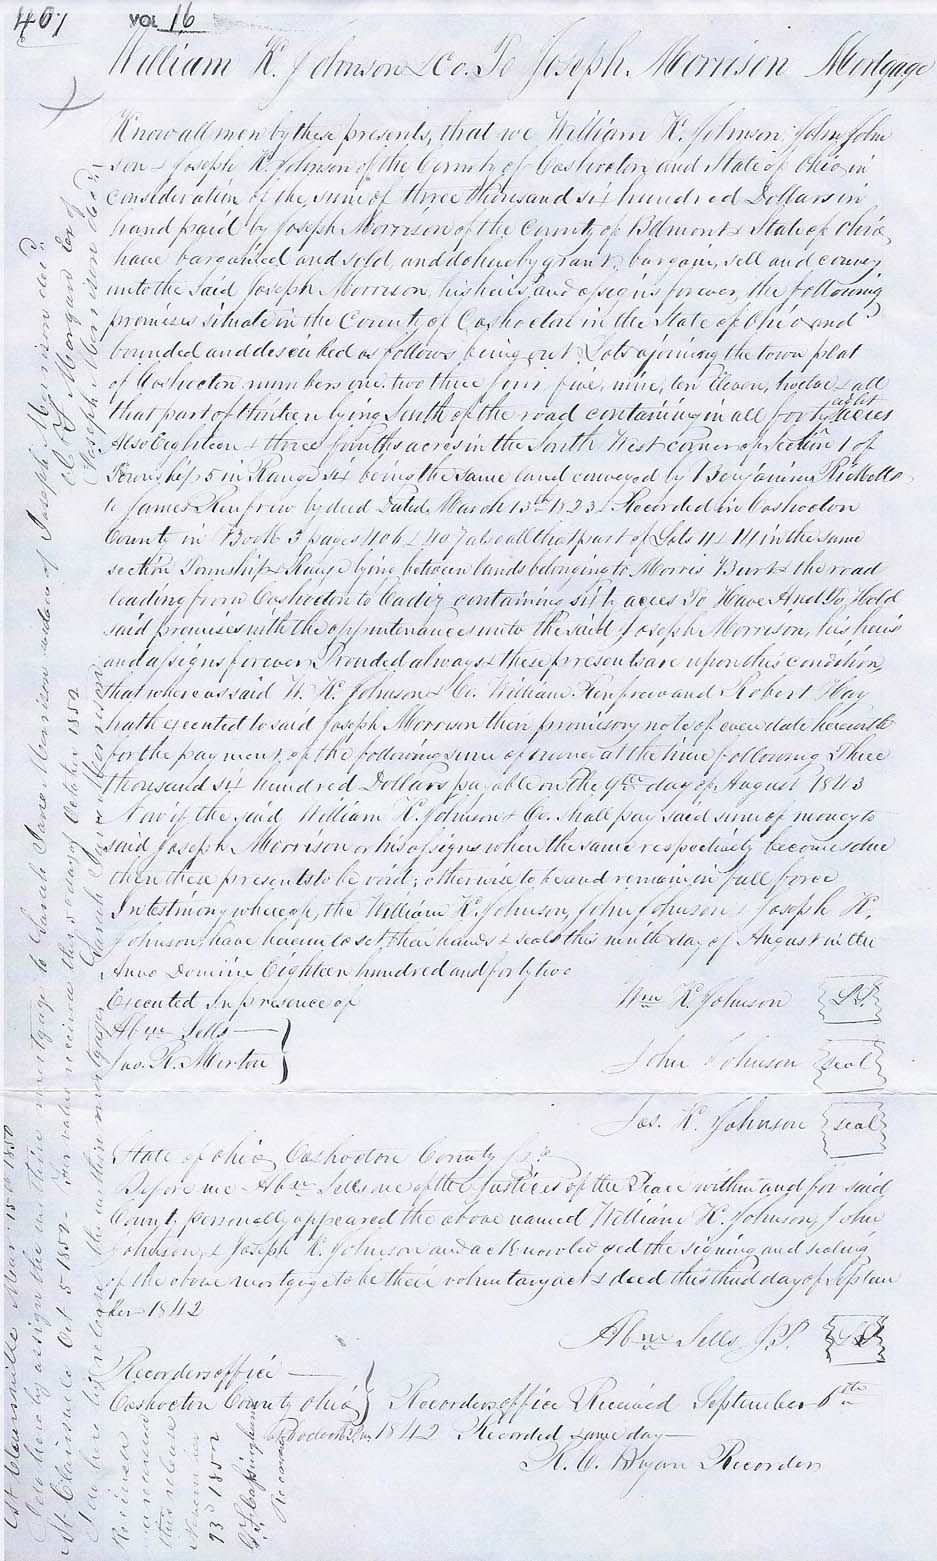 407 VOL 16
William K. Johnson & Co. To Joseph Morrison Mortgage
Know all men by these presents, that we William K. Johnson John John
son & Joseph K. Johnson of the County of Coshocton and State of Ohio in
consideration of the sum of three thousand six hundred Dollars in
hand paid by Joseph Morrison of the County of Belmont & State of Ohio
have bargained and sold, and do hereby grant, bargain, sell and convey
unto the said Joseph Morrison, his heirs and assigns forever, the following
premises situate in the County of Coshocton in the State of Ohio and
bounded and described as follows being out Lots ajoining the town plat
of Coshocton numbers one two three four five, nine, ten Eleven, twelve & all
that part of thirteen lying South of the road containing in all forty eight acres
Also Eighteen & three fourths acres in the South West corner of Section 1 of
Township 5 in Range six being the same land conveyed by Benjamin Ricketts
to James Renfrew by deed Dated March 13th 1823 & Recorded in Coshocton
County in Book 3 pages 406 & 407 also all that part of Lots 4 & 14 in the same
section Township & Range lying between lands belonging to Morris Burt & the road
leading from Coshocton to Cadiz containing sixty acres To Have And To Hold
said premises with the appurtenances unto the said Joseph Morrison, his heirs
and assigns forever Provided always & these presents are upon this condition,
that whereas said W. K. Johnson & Co. William Renfrew and Robert Hay
hath executed to said Joseph Morrison their promisory note of even date herewith
for the payment of the following sum of money at the time following Three
thousand six hundred Dollars payable on the 9th day of August 1843
Now if the said William K. Johnson & Co. shall pay said sum of money to
said Joseph Morrison or his assigns when the same respectively becomes due
then these presents to be void; otherwise to be and remain in full force
In testimony whereof, the William K. Johnson, John Johnson & Joseph K.
Johnson have hereunto set their hands & seals this ninth day of August in the
Anno Domini Eighteen hundred and forty two
Executed In presence of Wm K. Johnson L.S.
Abm Sells
Jas. R. Morton John Johnson seal
Jos. K. Johnson seal
State of Ohio, Coshocton County Ss
Before me Abm Sells one of the Justices of the Peace within and for said
County personally appeared the above named William K. Johnson, John
Johnson, & Joseph K. Johnson and acknowledged the signing and sealing
of the above mortgage to be their voluntary act & deed this third day of Septem
ber 1842
Abm Sells J.P. L.S.
Recorders office
Coshocton County Ohio Recorders office Received September 6th
1842 Recorded same day
R. C. Bryan Recorder
St Clairsville Mar 15th 1850
I do hereby assign the within mortgage to Sarah Jane Morrison widow of Joseph Morrison decd.
C. H. Morgan Exr of
Joseph Morrison decd.
St. Clairsville Oct 5 1852 - For value received this 5 day of October 1852
I do hereby release the within mortgage Sarah Jane Morrison
Received
and recorded
this release
November
23d 1852
Recorder